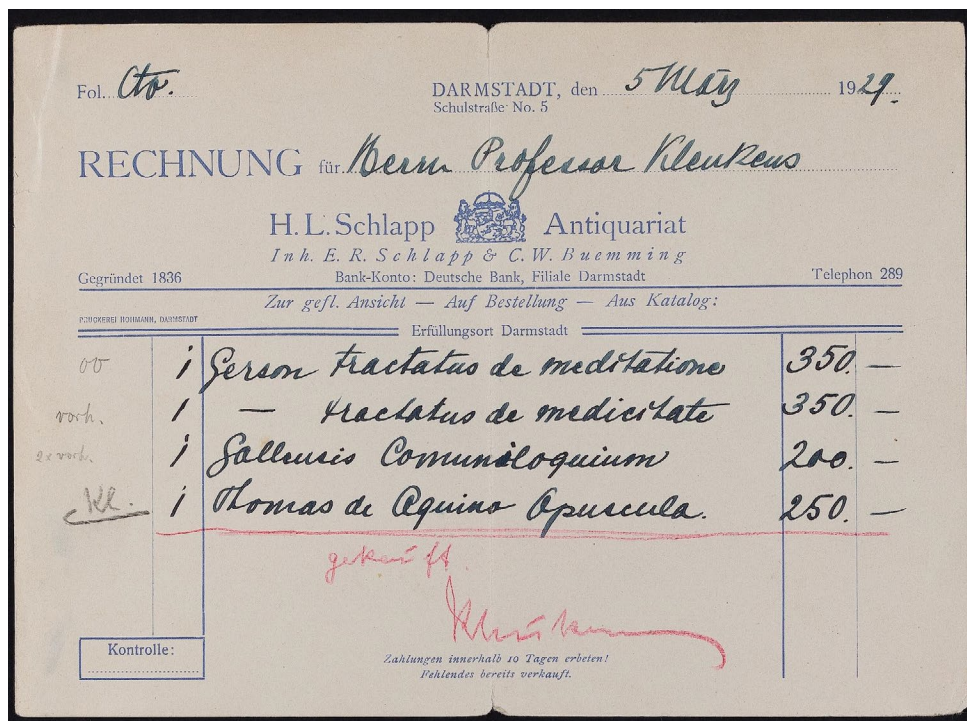 Fol. Cto. DARMSTADT, den 5 März 1929.
Schulstraße No. 5
RECHNUNG für Herrn Professor Kleukens
H. L. Schlapp Antiquariat
Inh. E. R. Schlapp & C. W. Buemming
Gegründet 1836 Bank-Konto: Deutsche Bank, Filiale Darmstadt Telephon 289
Zur gefl. Ansicht — Auf Bestellung — Aus Katalog:
DRUCKEREI HOHMANN, DARMSTADT
Erfüllungsort Darmstadt
1 Gerson tractatus de meditatione 350. —
vorh. 1 — tractatus de medicitate 350. —
2x vorh. 1 Gallensis Comuniloquium 200. —
Kl. 1 Thomas de Aquino Opuscula. 250. —
gekauft.
Kleukens
Kontrolle:
Zahlungen innerhalb 10 Tagen erbeten!
Fehlendes bereits verkauft.